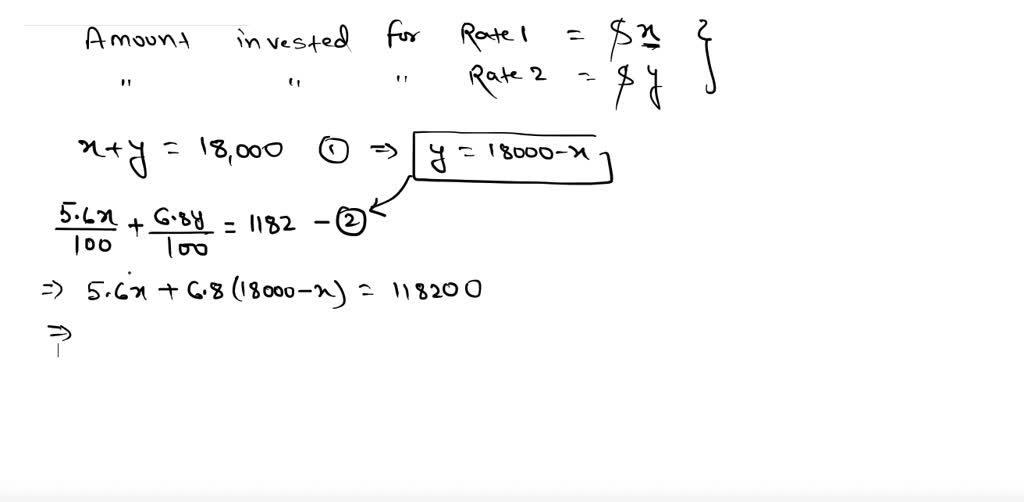 Amount invested for Rate 1 = $x }
" " " Rate 2 = $y
x+y = 18,000 ① ⇒ y = 18000-x
5.6x/100 + 6.8y/100 = 1182 - ②
⇒ 5.6x + 6.8(18000-x) = 118200
⇒